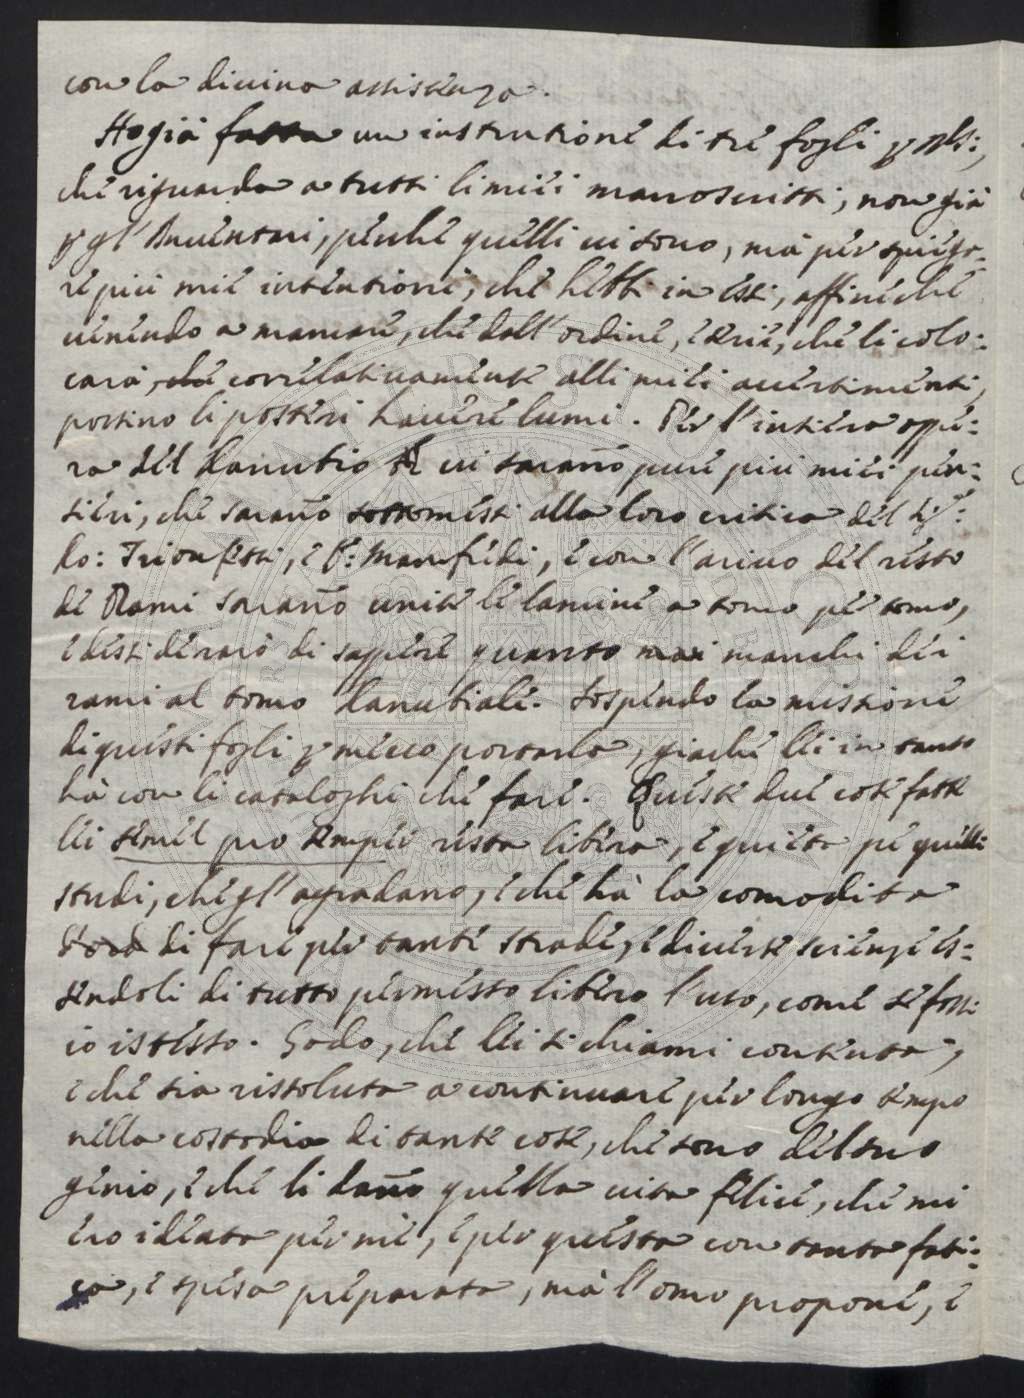 con la diuina assistenza.
Ho già fatta un instrutione di tre fogli p
che riguarda a tutti li miei manoscritti, non già
p gl'Inuentari, perche quelli ui sono, mà per spiega=
re piu mie intentioni, che hebbi in essi, affine che
uenendo a mancare, che dall'ordine, e serie, che li colo=
carà, che correlatiuamente alli miei auertimenti,
possino li posteri hauere lumi. Per l'intiera ope=
ra del Danubio ui sarano pure piu miei pen=
sieri, che sarano sottomessi alla loro critica del
do: Trionfetti, e S: Manfredi, e con l'ariuo del resto
de Rami sarano unite le lamine a tomo per tomo,
e desiderarò di sapere quanto mai manchi dei
rami al tomo Danubiale. Sospendo la missione
di questi fogli p meco portarla, giache lei in tanto
hà con li cataloghi che fare. Queste due cose fatte
lei semel pro semper resta libera, e quieta pe quelli
studi, che gl'agradano, e che hà la comodita
di fare per tante strade, e diuerse scienze es=
sendoli di tutto permesso libero l'uso, come se fossi
io istesso. Godo, che lei si chiami contenta,
e che sia rissoluta a continuare per longo tempo
nella costodia di tante cose, che sono del suo
genio, e che li dano quella uita felice, che mi
ero ideata per me, e per questa con tanta fati=
ca, e spesa preparata, mà l'omo propone, e